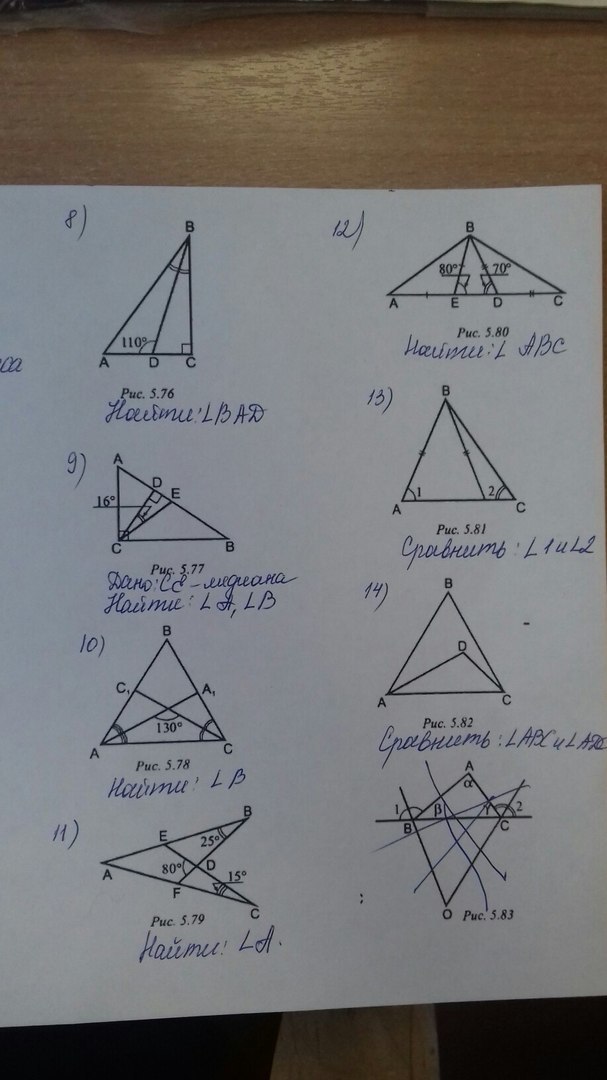 8)
B
110°
A D C
Рис. 5.76
Найти: ∠BAD
9)
A
D
E
16°
C B
Рис. 5.77
Дано: CE - медиана
Найти: ∠A, ∠B
10)
B
C₁ A₁
130°
A C
Рис. 5.78
Найти: ∠B
11)
B
E 25°
A 80° D 15°
F
C
Рис. 5.79
Найти: ∠A.
12)
B
80° 70°
A E D C
Рис. 5.80
Найти: ∠ABC
13)
B
1 2
A C
Рис. 5.81
Сравнить: ∠1 и ∠2
14)
B
D
A C
Рис. 5.82
Сравнить: ∠ABC и ∠ADC
A
α
1 β γ 2
B C
O Рис. 5.83